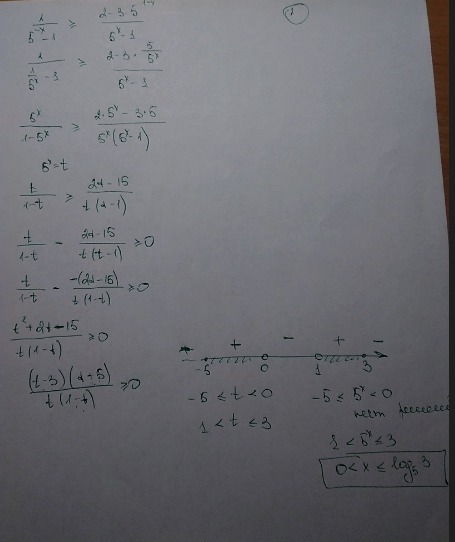 1/(5^-x - 1) ≥ (2 - 3·5^1-x)/(5^x - 1)
1/(1/5^x - 1) ≥ (2 - 3·5/5^x)/(5^x - 1)
5^x/(1 - 5^x) ≥ (2·5^x - 3·5)/(5^x(5^x - 1))
5^x = t
t/(1-t) ≥ (2t - 15)/(t(t-1))
t/(1-t) - (2t-15)/(t(t-1)) ≥ 0
t/(1-t) - (-(2t-15))/(t(1-t)) ≥ 0
(t² + 2t - 15)/(t(1-t)) ≥ 0
((t-3)(t+5))/(t(1-t)) ≥ 0
+ - + -
-5 0 1 3
-5 ≤ t < 0
1 < t ≤ 3
-5 ≤ 5^x < 0
нет решений
1 < 5^x ≤ 3
0 < x ≤ log₅3